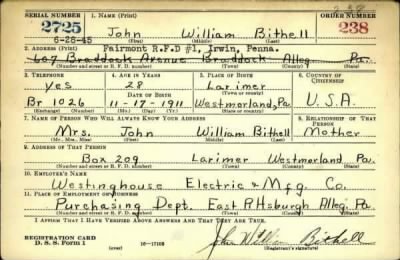 238
SERIAL NUMBER 1. NAME (Print) ORDER NUMBER
2725 John William Bithell 238
6-28-45 (First) (Middle) (Last)
2. ADDRESS (Print) Fairmont R.F.D #1, Irwin, Penna.
607 Braddock Avenue Braddock Alleg. Pa.
(Number and street or R. F. D. number) (Town) (County) (State)
3. TELEPHONE 4. AGE IN YEARS 5. PLACE OF BIRTH 6. COUNTRY OF CITIZENSHIP
Yes 28 Larimer
DATE OF BIRTH (Town or county)
Br 1026 11-17-1911 Westmorland, Pa. U.S.A.
(Exchange) (Number) (Mo.) (Day) (Yr.) (State or country)
7. NAME OF PERSON WHO WILL ALWAYS KNOW YOUR ADDRESS 8. RELATIONSHIP OF THAT PERSON
Mrs. John William Bithell Mother
(Mr., Mrs., Miss) (First) (Middle) (Last)
9. ADDRESS OF THAT PERSON
Box 209 Larimer Westmorland Pa.
(Number and street or R. F. D. number) (Town) (County) (State)
10. EMPLOYER'S NAME
Westinghouse Electric & Mfg. Co.
11. PLACE OF EMPLOYMENT OR BUSINESS
Purchasing Dept. East Pittsburgh Alleg. Pa.
(Number and street or R. F. D. number) (Town) (County) (State)
I AFFIRM THAT I HAVE VERIFIED ABOVE ANSWERS AND THAT THEY ARE TRUE.
REGISTRATION CARD
D. S. S. Form 1 (over) 16-17105 John William Bithell
(Registrant's signature)